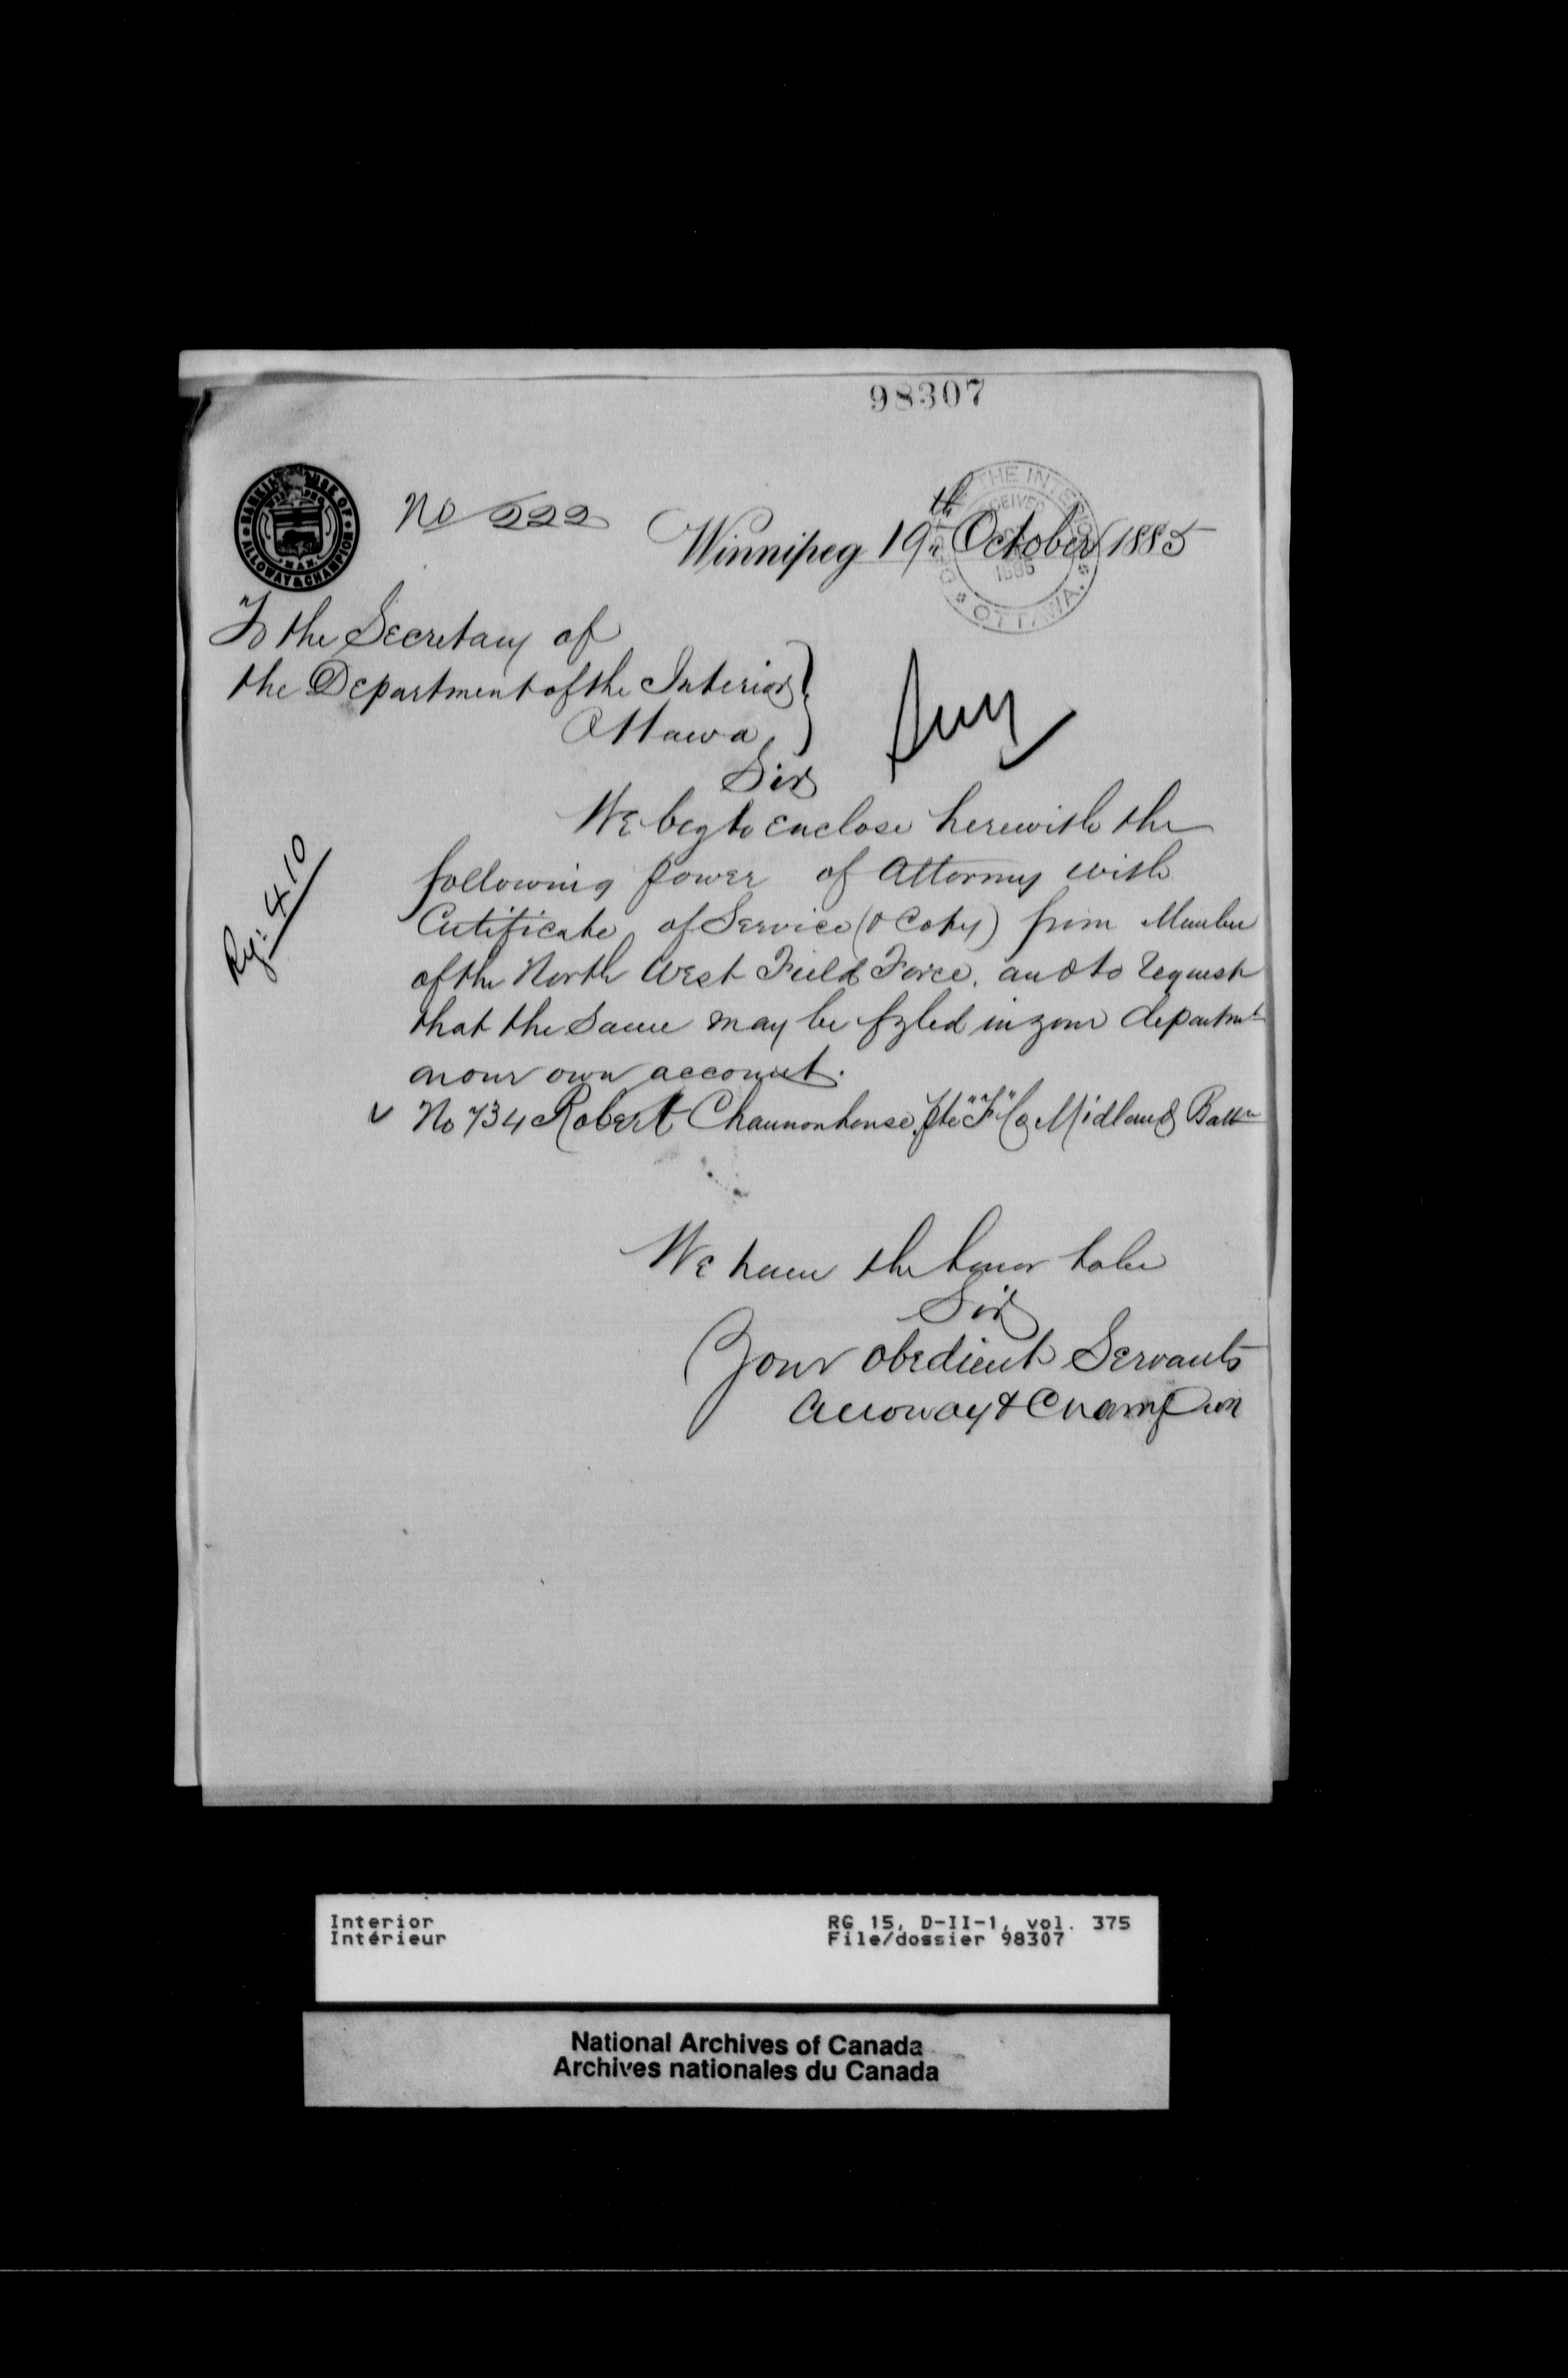 98307
BANKING HOUSE OF ALLOWAY & CHAMPION MAN.
No 222
Winnipeg 19th October 1885
DEPT OF THE INTERIOR RECEIVED 1885 OTTAWA
To the Secretary of
the Department of the Interior
Ottawa,
Sir
We beg to enclose herewith the
following power of Attorney with
Certificate of Service (& Copy) from Member
of the North West Field Force, and to request
that the same may be fyled in your departmt
on our own account.
Rg: 410
v No 734 Robert Channonhouse Pte "F" Co Midland Battn
We have the honor to be
Sir
Your obedient Servants
Alloway & Champion
Interior
Intérieur
RG 15, D-II-1, vol. 375
File/dossier 98307
National Archives of Canada
Archives nationales du Canada